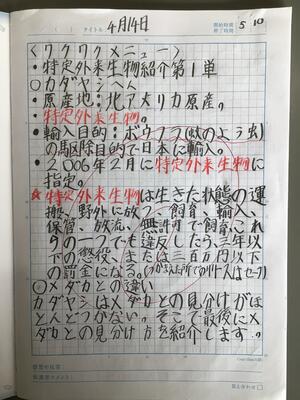 タイトル 4月14日
開始時間 5
終了時間 10
〈ワクワクメニュー〉
・特定外来生物紹介第1単
○カダヤシへん
・原産地:北アメリカ原産。
・特定外来生物。
・輸入目的:ボウフラ(蚊のよう虫)
の駆除目的で日本に輸入。
・2006年2月に特定外来生物に
指定。
☆特定外来生物は生きた状態の運
搬、野外に放つ、飼育、輸入、
保管、放流、無許可で飼う、これ
らの一つでも違反したら三年以
下の懲役、または三百万円以下
の罰金になる。
○メダカとの違い
カダヤシはメダカとの見分けがほ
とんどつかない。そこで最後にメ
ダカとの見分け方を紹介します。
感想や反省
保護者コメント
答え合わせ